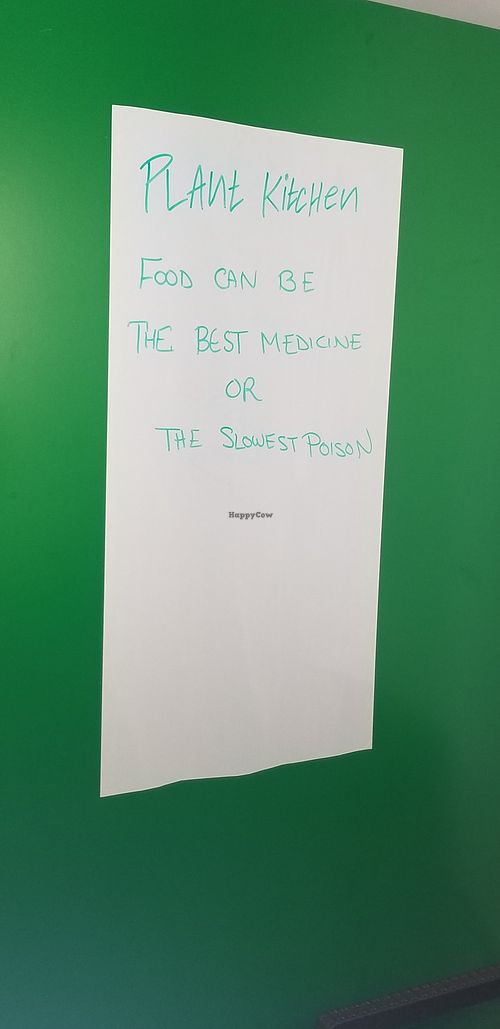 PLAnt KitcHen
FOOD CAN BE
THE BEST MEDICINE
OR
THE SLOWEST POISON
HappyCow